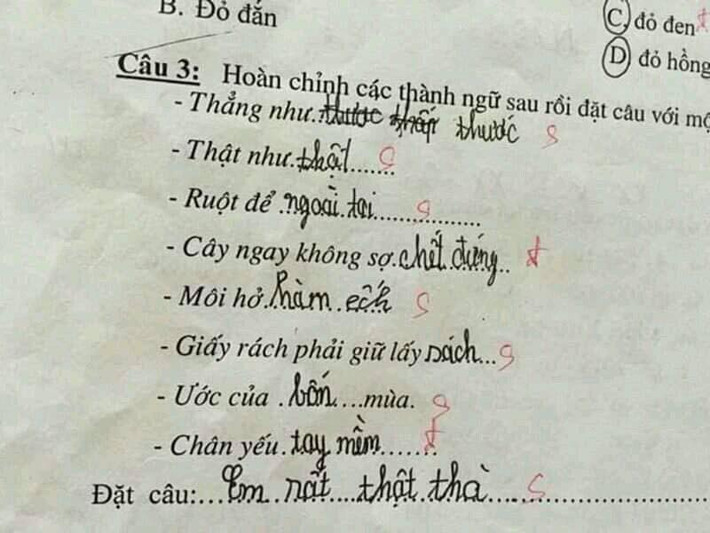 B. Đỏ đắn
C. đỏ đen
D. đỏ hồng
Câu 3: Hoàn chỉnh các thành ngữ sau rồi đặt câu với
- Thẳng như thước s
- Thật như thật s
- Ruột để ngoài tai s
- Cây ngay không sợ chết đứng đ
- Môi hở hàm ếch s
- Giấy rách phải giữ lấy sách s
- Ước của bốn mùa. s
- Chân yếu tay mềm đ
Đặt câu: Em rất thật thà s